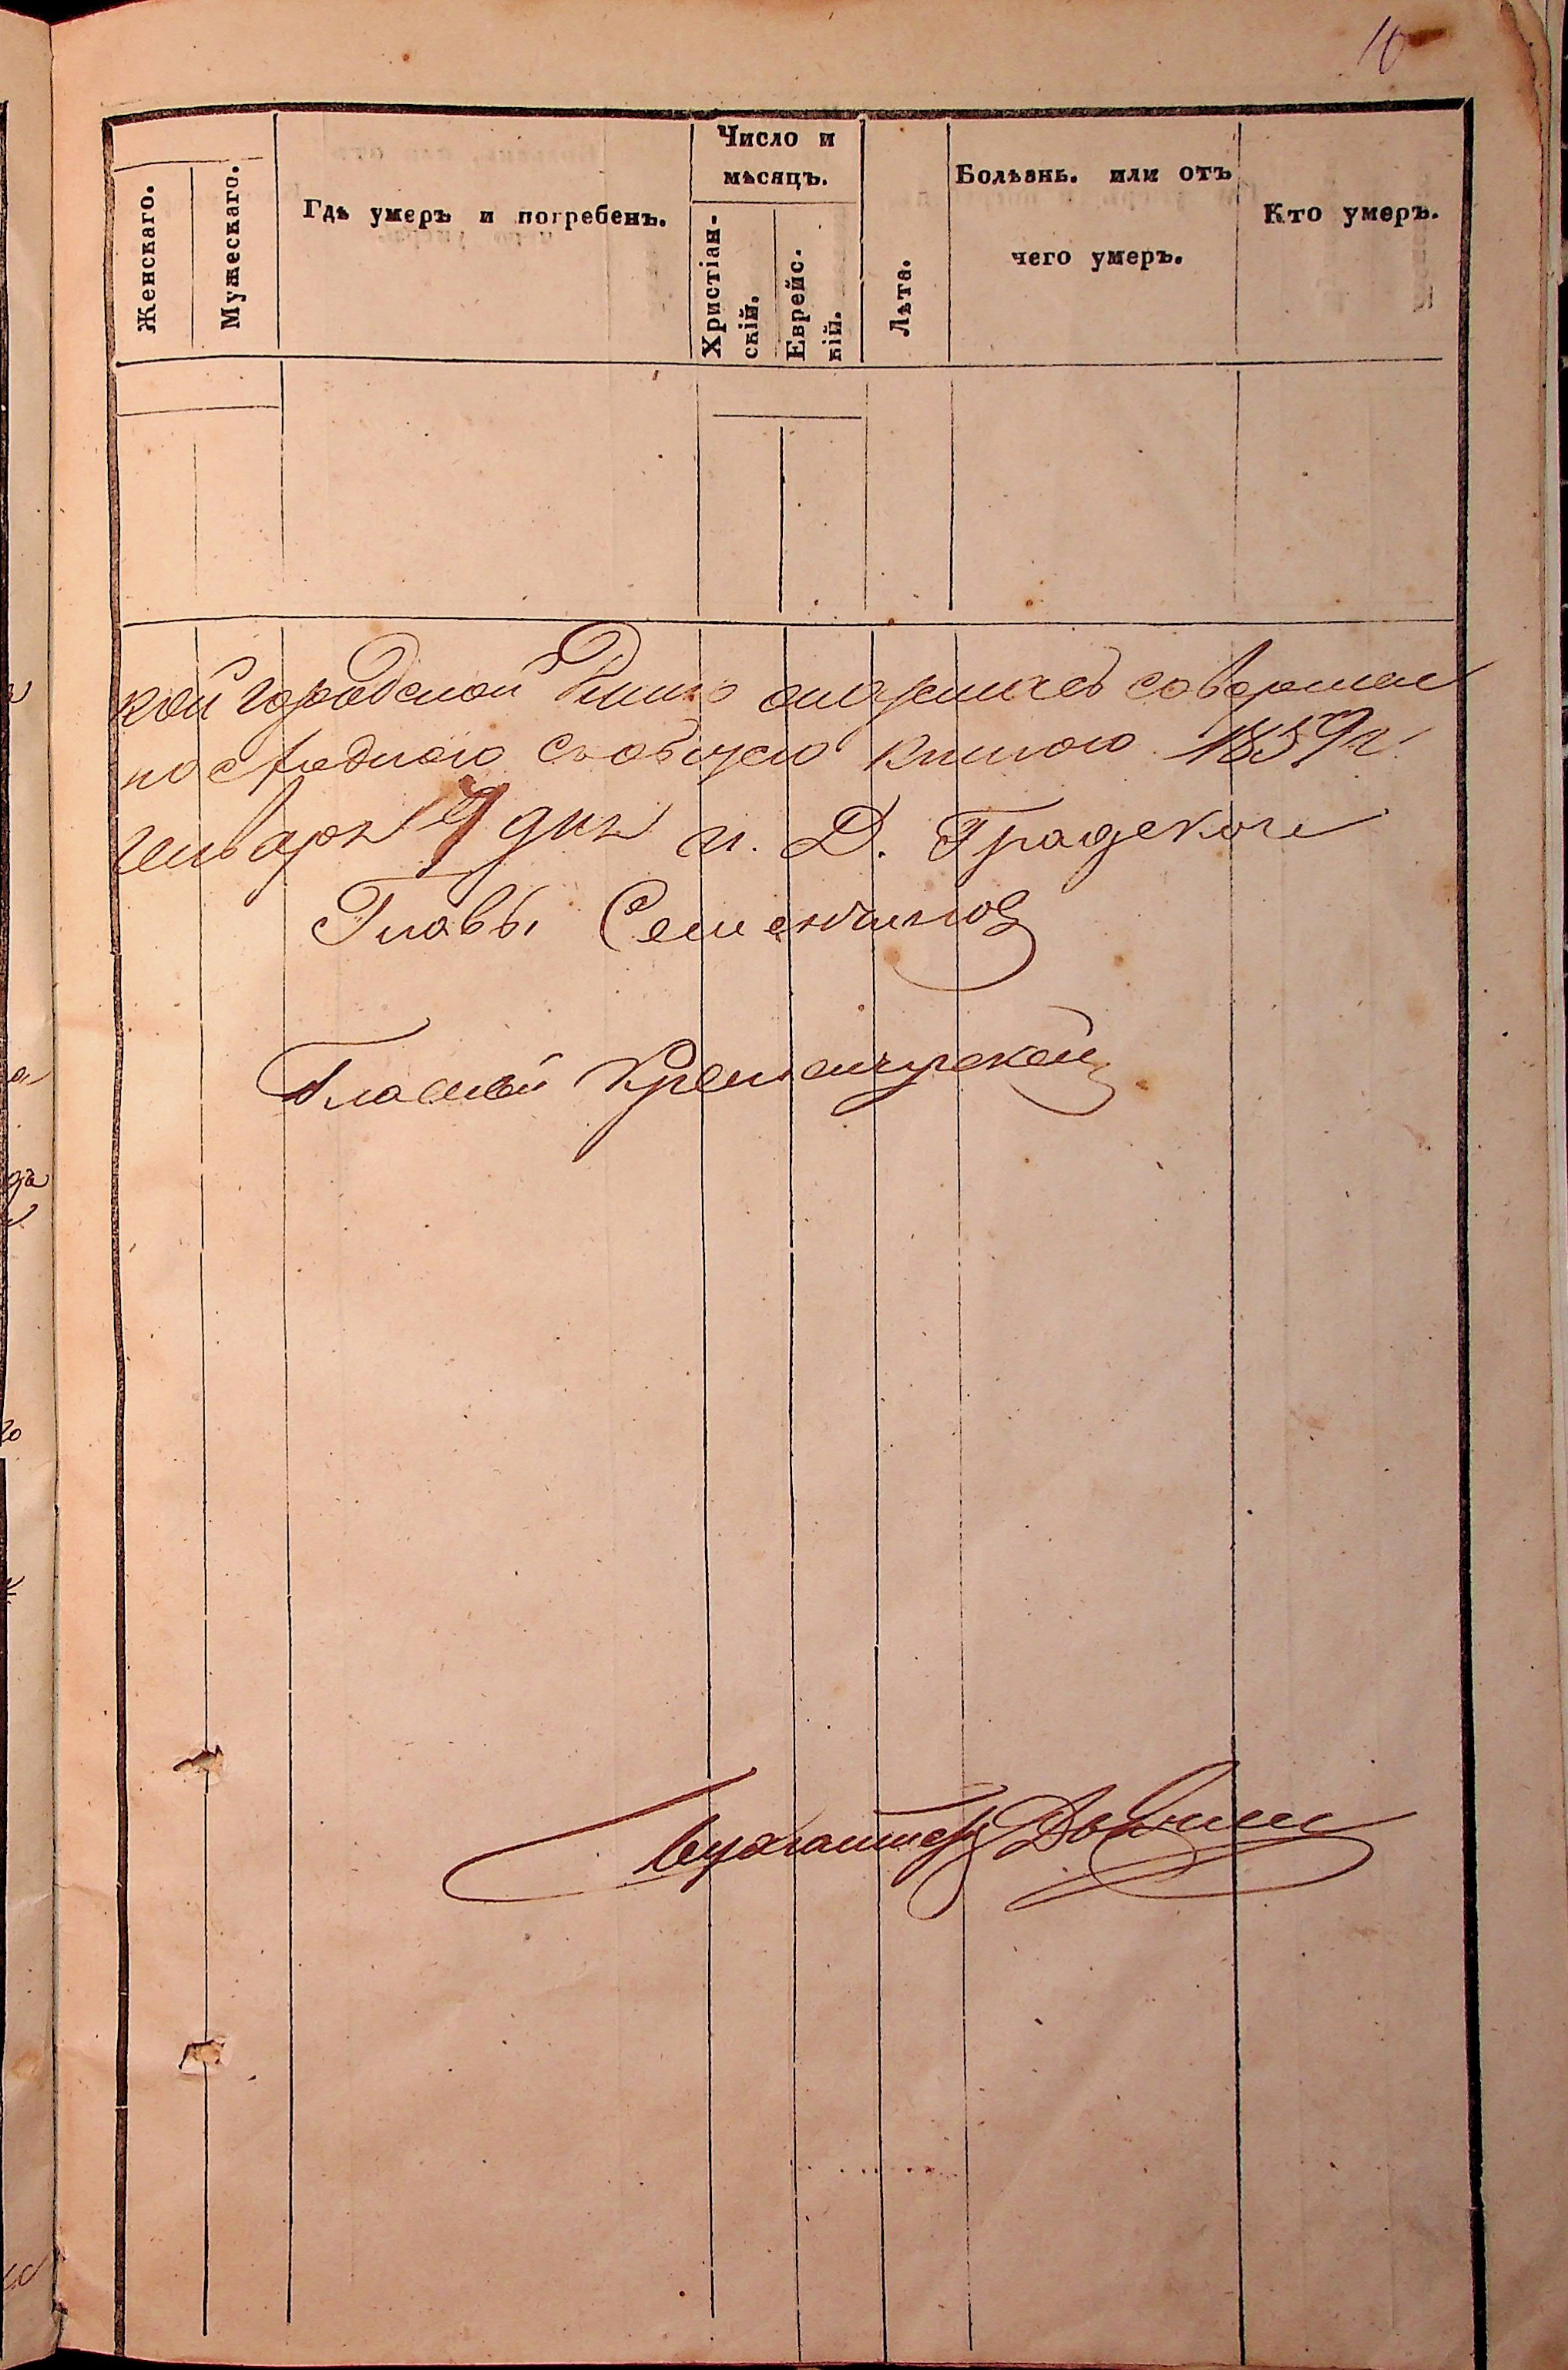 10
Женскаго.
Мужескаго.
Гдѣ умеръ и погребенъ.
Число и
мѣсяцъ.
Христіан-
скій.
Еврейс.
кій.
Лѣта.
Болѣзнь. или отъ
чего умеръ.
Кто умеръ.
кой городской Думы
книгою 1859 г.
Генваря 9 дня и. Д. Градскаго
Главы Семенчинов
Гласный Кременчугской
Бухгалтеръ